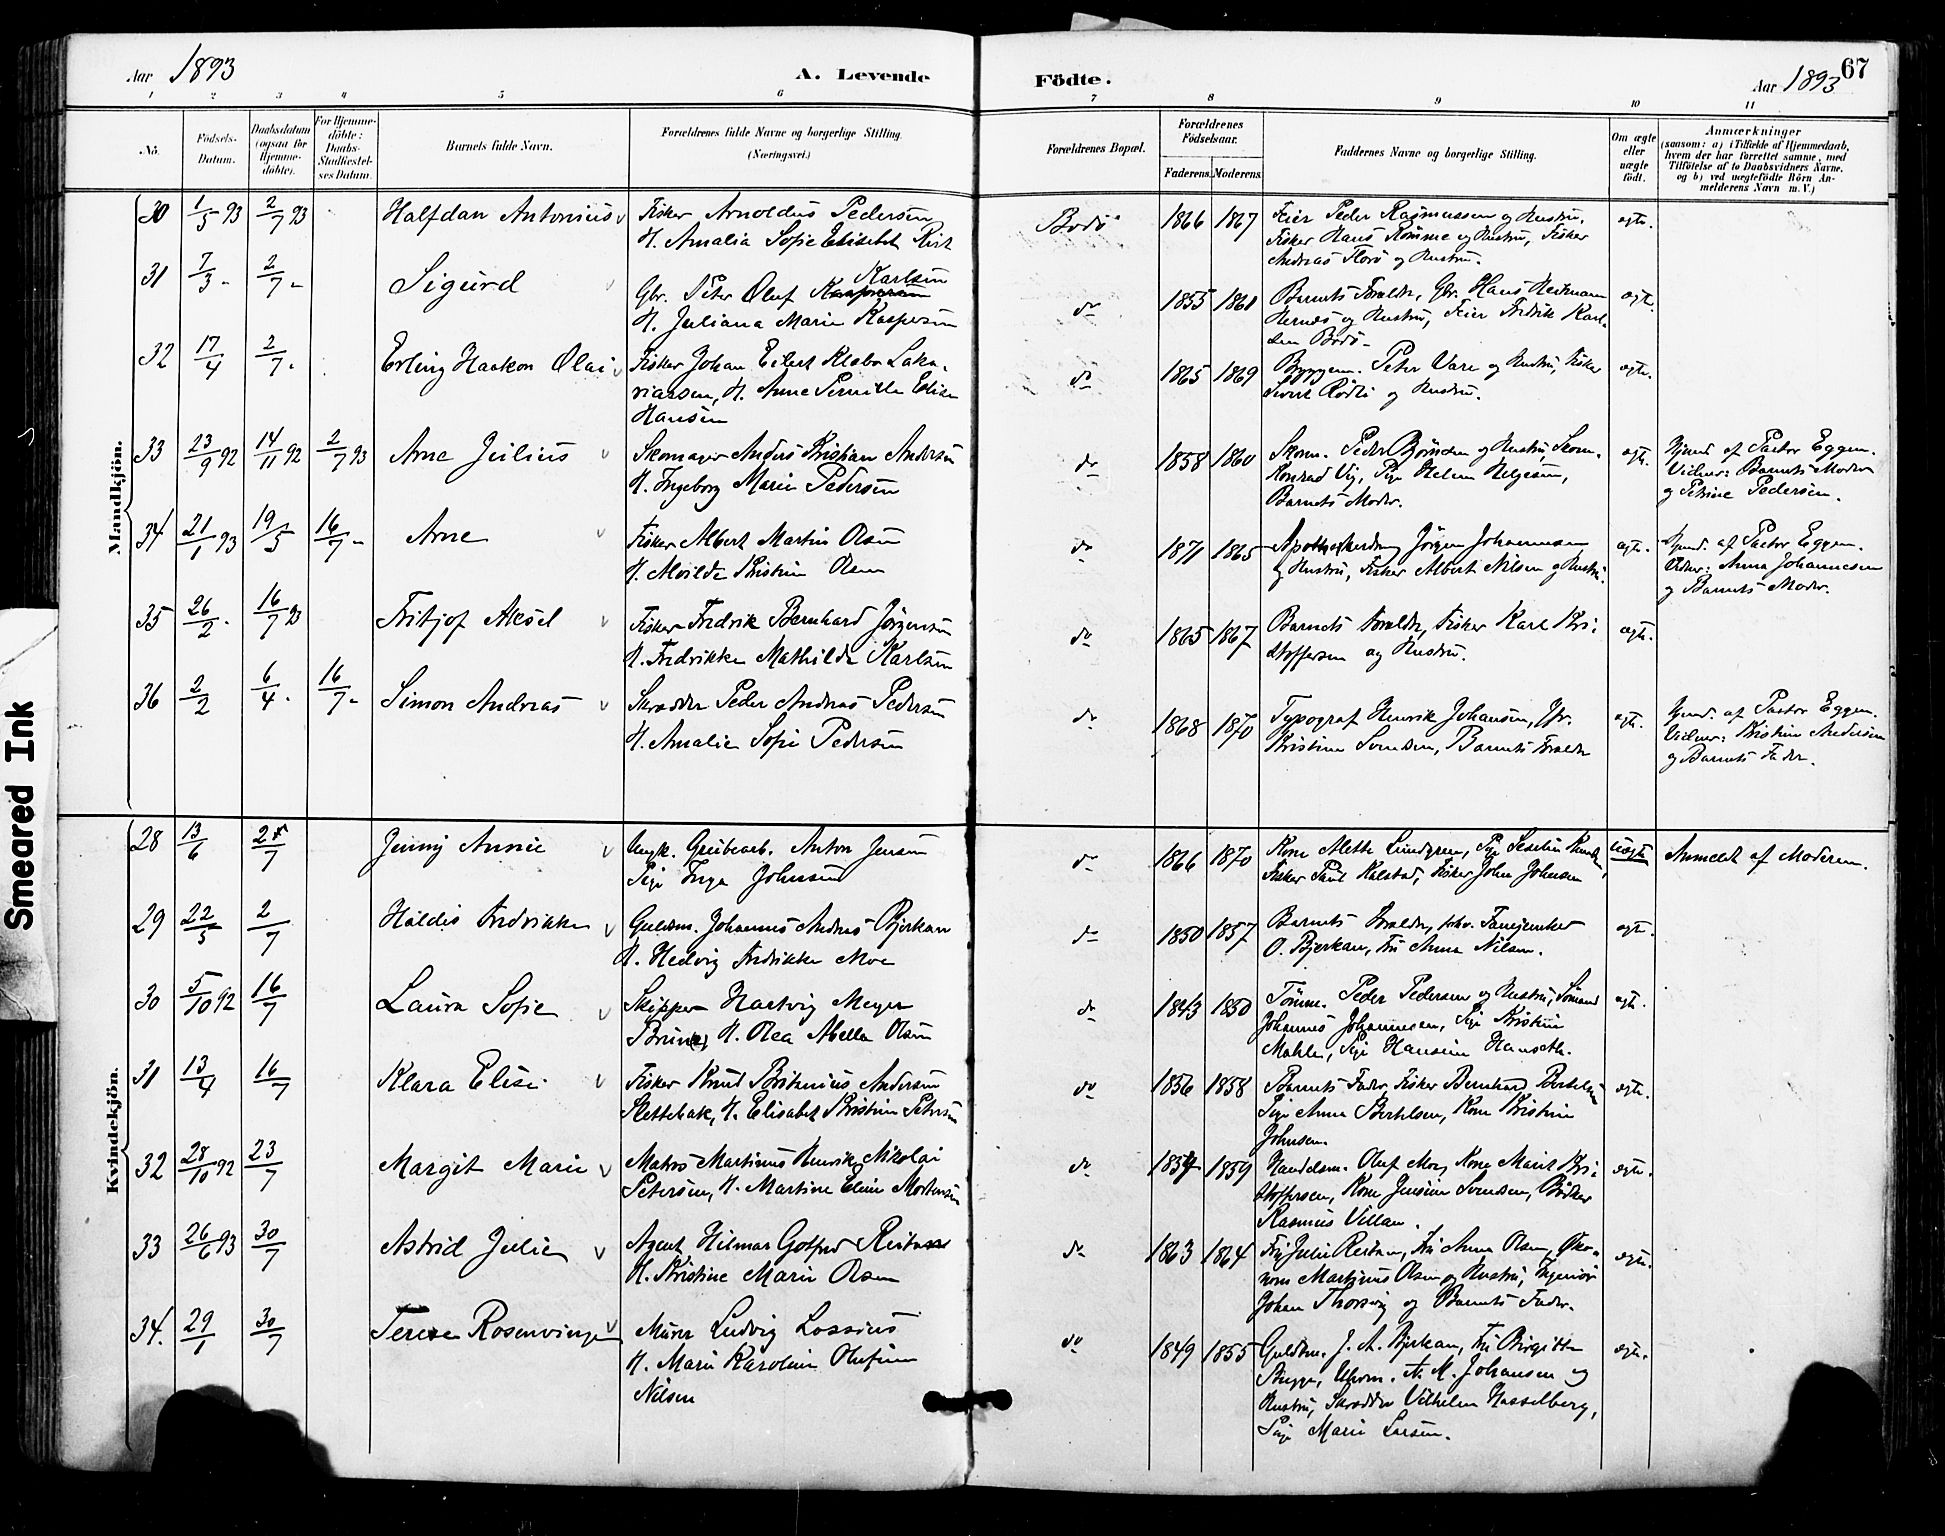 Aar 1893
A. Levende
Födte.
Aar 1893
67
1 2 3 4 5 6 7 8 9 10 11
No.
Födsels-Datum.
Daabsdatum (ogsaa for Hjemmedöbte).
For Hjemmedöbte: Daabs-Stadfæstelses Datum.
Barnets fulde Navn.
Forældrenes fulde Navne og borgerlige Stilling. (Næringsvei.)
Forældrenes Bopæl.
Forældrenes Födselsaar.
Faderens. Moderens.
Faddernes Navne og borgerlige Stilling.
Om ægte eller uægte födt.
Anmærkninger (saasom: a) i Tilfælde af Hjemmedaab, hvem der har forrettet samme, med Tilföielse af to Daabsvidners Navne, og b) ved uægtefödte Börn Anmelderens Navn m. V.)
Mandkjön.
30 1/5 93 2/7 93 Halfdan Antonius Fisker Arnoldus Pedersen Bodö 1866 1867 Feier Peder Rasmussen og Hustru, ægte.
H. Amalia Sofie Elisabet Fisker Hans Rømme og Hustru, Fisker
Andreas Florö og Hustru.
31 7/3 - 2/7 - Sigurd Karlsen
Gbr. Peter Oluf Kaspersen do 1855 1861 Barnets Forældre, Gbr. Hans Heitmann ægte.
H. Juliana Marie Kaspersen Hernes og Hustru, Feier Fredrik Karlsen Bodö.
32 17/4 2/7 - Erling Haakon Olai Fisker Johan Eilert Klabo Zakariassen, H. Anne Pernille Elise Hansen do 1865 1869 Byggm. Peter Vare og Hustru, Fisker ægte.
og Hustru.
33 23/9 92 14/11 92 2/7 93 Arne Julius Skomager Anders Kristian Andersen do 1858 1860 Skom. Peder Björnsen og Hustru, Skom. ægte. Hjemd. af Pastor Eggen.
H. Ingeborg Marie Pedersen Konrad Vig, Pige Helene Helgesen, Vidner: Barnets Moder
Barnets Moder. og Petrine Pedersen.
34 21/1 93 19/5 16/7 - Arne Fisker Albert Martin Olsen do 1871 1865 Jörgen Johannesen ægte. Hjemd. af Pastor Eggen.
H. Alvilde Kristine Olsen og Hustru, Fisker Albert Nilsen og Hustru. Vidner: Anna Johannesen
og Barnets Moder.
35 26/2 - 16/7 93 Fritjof Aksel Fisker Fredrik Bernhard Jörgensen do 1865 1867 Barnets Forældre, Fisker Karl Kristoffersen og Hustru. ægte.
H. Fredrikke Mathilde Karlsen
36 2/2 6/4 - 16/7 - Simon Andreas Skrædder Peder Andreas Pedersen do 1868 1870 Typograf Henrik Johansen, Jfr. ægte. Hjemd. af Pastor Eggen.
H. Amalie Sofie Pedersen Kristine Svendsen, Barnets Forældre Vidner: Kristine Andersen
og Barnets Fader.
Kvindekjön.
28 13/6 2/7 Jenny Annie Ungk. Grubearb. Anton Jensen do 1866 1870 Kone Mette Lundgren, Pige uægte Anmeldt af Moderen.
Pige Inga Johnsen Fisker Paul Kalstad, Fisker John Johnsen
29 22/5 2/7 Haldis Fredrikke Guldsm. Johannes Andreas Bjerkan do 1850 1857 Barnets Forældre, Fanejunker ægte.
H. Hedvig Fredrikke Moe O. Bjerkan, Fru Anna Nilsen.
30 5/10 92 16/7 Laura Sofie Skipper Hartvig Meyer do 1843 1850 Tömm. Peder Pedersen og Hustru, Sömand ægte.
Brun, H. Olea Abella Olsen Johannes Johannesen, Pige Kristine
Pige Hansine
31 13/4 16/7 Klara Elise Fisker Knud Andersen do 1856 1858 Barnets Fader, Fisker Bernhard Bertelsen ægte.
Slettebak, H. Elisabet Kristine Petersen Pige Anna Bertelsen, Kone Kristine
Johnsen.
32 28/10 92 23/7 Margit Marie Matros Martinus Henrik Nikolai do 1854 1859 Handelsm. Oluf Moe, Kone Marit Kristoffersen, Kone Jensine Svendsen, Bödker ægte.
Petersen, H. Martine Eline Mortensen Rasmus Villan.
33 26/6 93 30/7 Astrid Julie Agent Hilmar Gotfred Reitan do 1863 1864 Fru Julie Reitan, Fru Anna Olsen, Ökonom Martinus Olsen og Hustru, Ingeniör ægte.
H. Kristine Marie Olsen Johan Thorsvig og Barnets Fader.
34. 29/1 30/7 Terese Rosenvinge Murer Ludvig Lossius do 1849 1855 Guldsm. J. A. Bjerkan, Fru Birgitte ægte.
H. Marie Karoline Olufine Skygge, Uhrm. A. M. Johansen og
Nilsen Hustru, Skrædder Vilhelm Hasselberg,
Pige Marie Larsen.
Smeared Ink